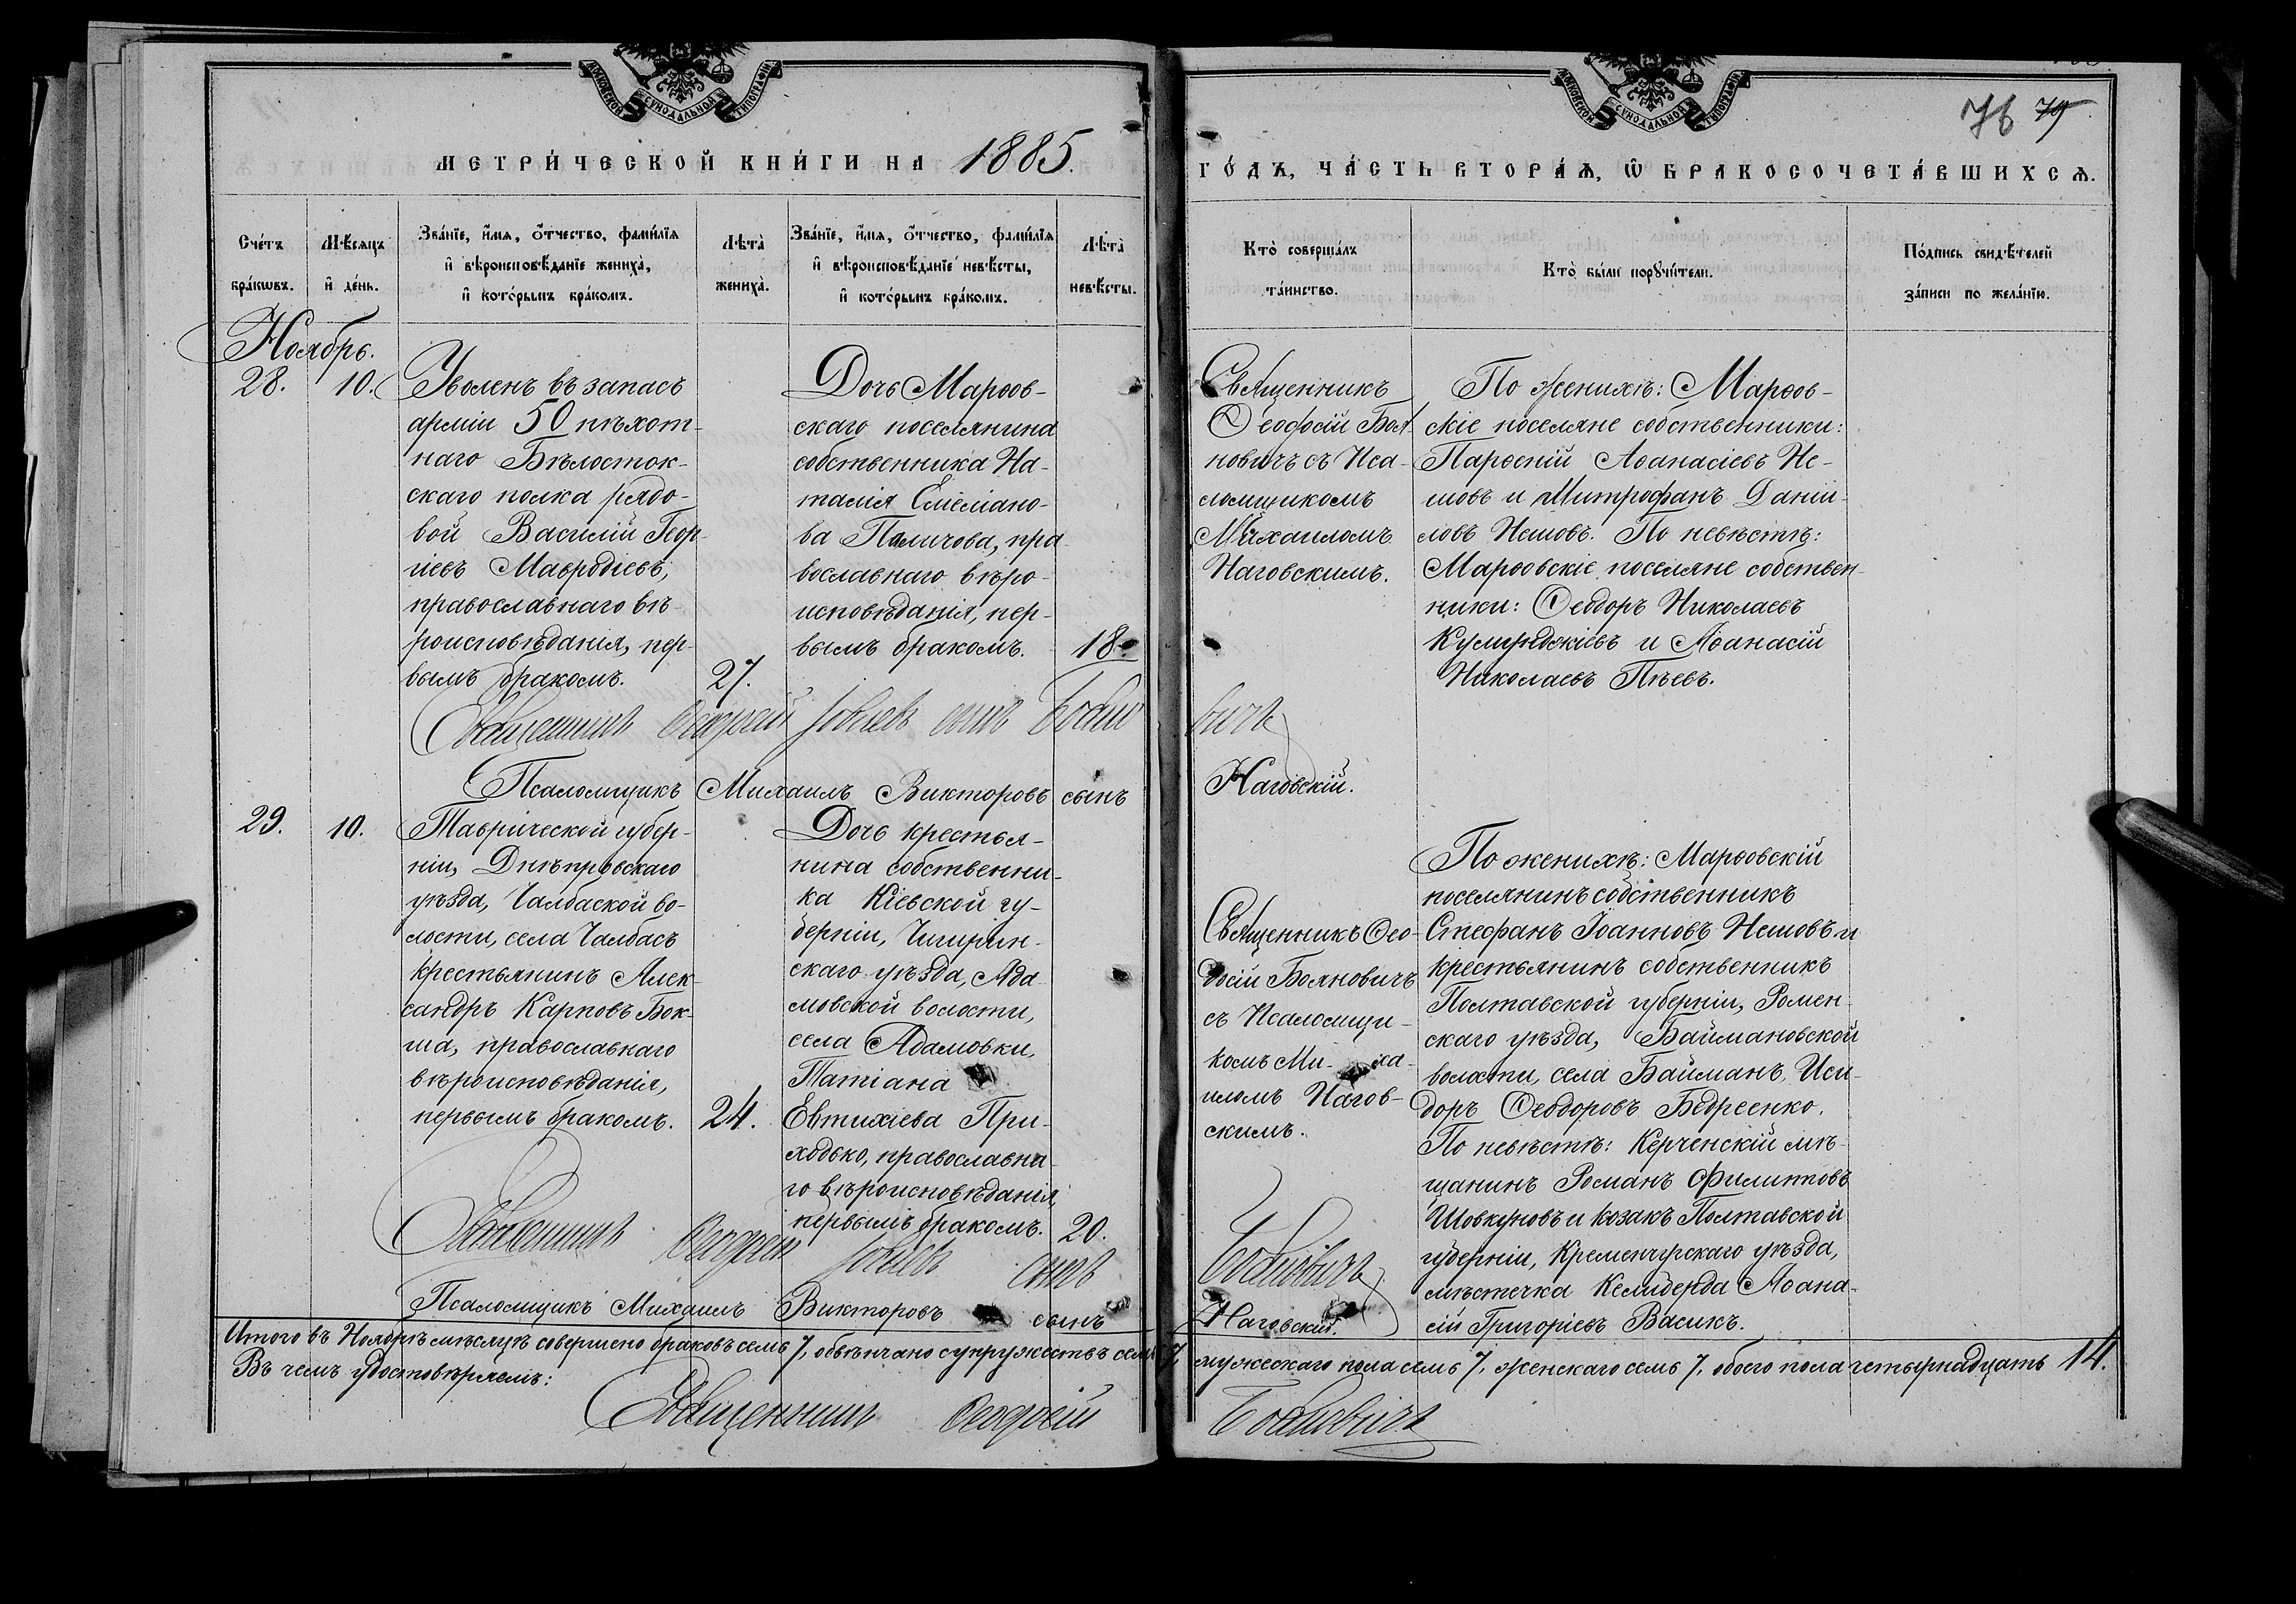 МОСКОВСКОЙ СѴНОДАЛЬНОЙ ТИПОГРАФІИ
МОСКОВСКОЙ СѴНОДАЛЬНОЙ ТИПОГРАФІИ
76 79
МЕТРИ́ЧЕСКОЙ КНИ́ГИ НА 1885.
ГО́ДЪ, ЧА́СТЬ ВТОРА́Ѧ, Ѿ БРАКОСОЧЕТА́ВШИХСѦ.
Сче́тъ
бра́кѡвъ.
Мѣ́сяцъ
и҆ де́нь.
Зва́нїе, и҆́мя, о҆́тчество, фами́лїя
и҆ вѣроисповѣ́данїе жениха̀,
и҆ кото́рымъ бра́комъ.
Лѣта̀
жениха̀.
Зва́нїе, и҆́мя, о҆́тчество, фами́лїя
и҆ вѣроисповѣ́данїе невѣ́сты,
и҆ кото́рымъ бра́комъ.
Лѣта̀
невѣ́сты.
Кто̀ соверша́лъ
та́инство.
Кто̀ бы́ли порꙋчи́тели.
По́дпись свидѣ́телей
за́писи по жела́нїю.
Ноябрь.
28.
10.
Уволенъ въ запасъ
арміи 50 пѣхот-
наго Бѣлосток-
скаго полка рядо-
вой Василій Геор-
гіевъ Мавродіевъ,
православнаго вѣ-
роисповѣданія, пер-
вымъ бракомъ.
27.
Дочь Марѳов-
скаго поселянина
собственника На-
талія Емеліано-
ва Паличова, пра-
вославнаго вѣро-
исповѣданія, пер-
вымъ бракомъ.
18.
Священникъ
Ѳеофсій Боя-
новичъ съ Пса-
ломщикомъ
Михаиломъ
Наговскимъ.
По женихѣ: Марѳов-
скіе поселяне собственники:
Парѳеній Аѳанасіевъ Не-
шовъ и Митрофанъ Даніи-
ловъ Нешовъ. По невѣстѣ:
Марѳовскіе поселяне собствен-
ники: Ѳеодоръ Николаевъ
Кулинджіевъ и Аѳанасій
Николаевъ Пѣевъ.
Священникъ Ѳеодосій Іовлевъ сынъ Боянович
Псаломщикъ Михаилъ Викторовъ сынъ Наговскій.
29.
10.
Таврической губер-
ніи, Днѣпровскаго
уѣзда, Чалбаской во-
лости, села Чалбасъ
крестьянинъ Алек-
сандръ Карповъ Бок-
ша, православнаго
вѣроисповѣданія,
первымъ бракомъ.
24.
Дочь крестья-
нина собственни-
ка Кіевской гу-
берніи, Чигирин-
скаго уѣзда, Ада-
мовской волости,
села Адамовки,
Татіана
Евтихіева При-
ходько, православна-
го вѣроисповѣданія,
первымъ бракомъ.
20.
Священникъ Ѳео-
досій Бояновичъ
съ Псаломщи-
комъ Ми-ха-
иломъ Нагов-
скимъ.
По женихѣ: Марѳовскій
поселянинъ собственникъ
Стефанъ Іоанновъ Нешовъ и
крестьянинъ собственникъ
Полтавской губерніи, Ромен-
скаго уѣзда, Баймановской
волости, села Байманъ, Иси-
доръ Ѳеодоровъ Бедреенко.
По невѣстѣ: Керченскій мѣ-
щанинъ Романъ Филипповъ
Шовкуновъ и козакъ Полтавской
губерніи, Кременчугскаго уѣзда,
мѣстечка Келиберда Аѳана-
сій Григоріевъ Васикъ.
Священникъ Ѳеодосій Іовлевъ сынъ Бояновичъ
Псаломщикъ Михаилъ Викторовъ сынъ Наговскій.
Итого въ Ноябрѣ мѣсяцѣ совершено браковъ семь 7, обвѣнчано супружествъ семь 7, мужескаго пола семь 7, женскаго семь 7, обоего пола четырнадцать 14.
Въ чемъ удостовѣряемъ:
Священникъ Ѳеодосій Бояновичъ